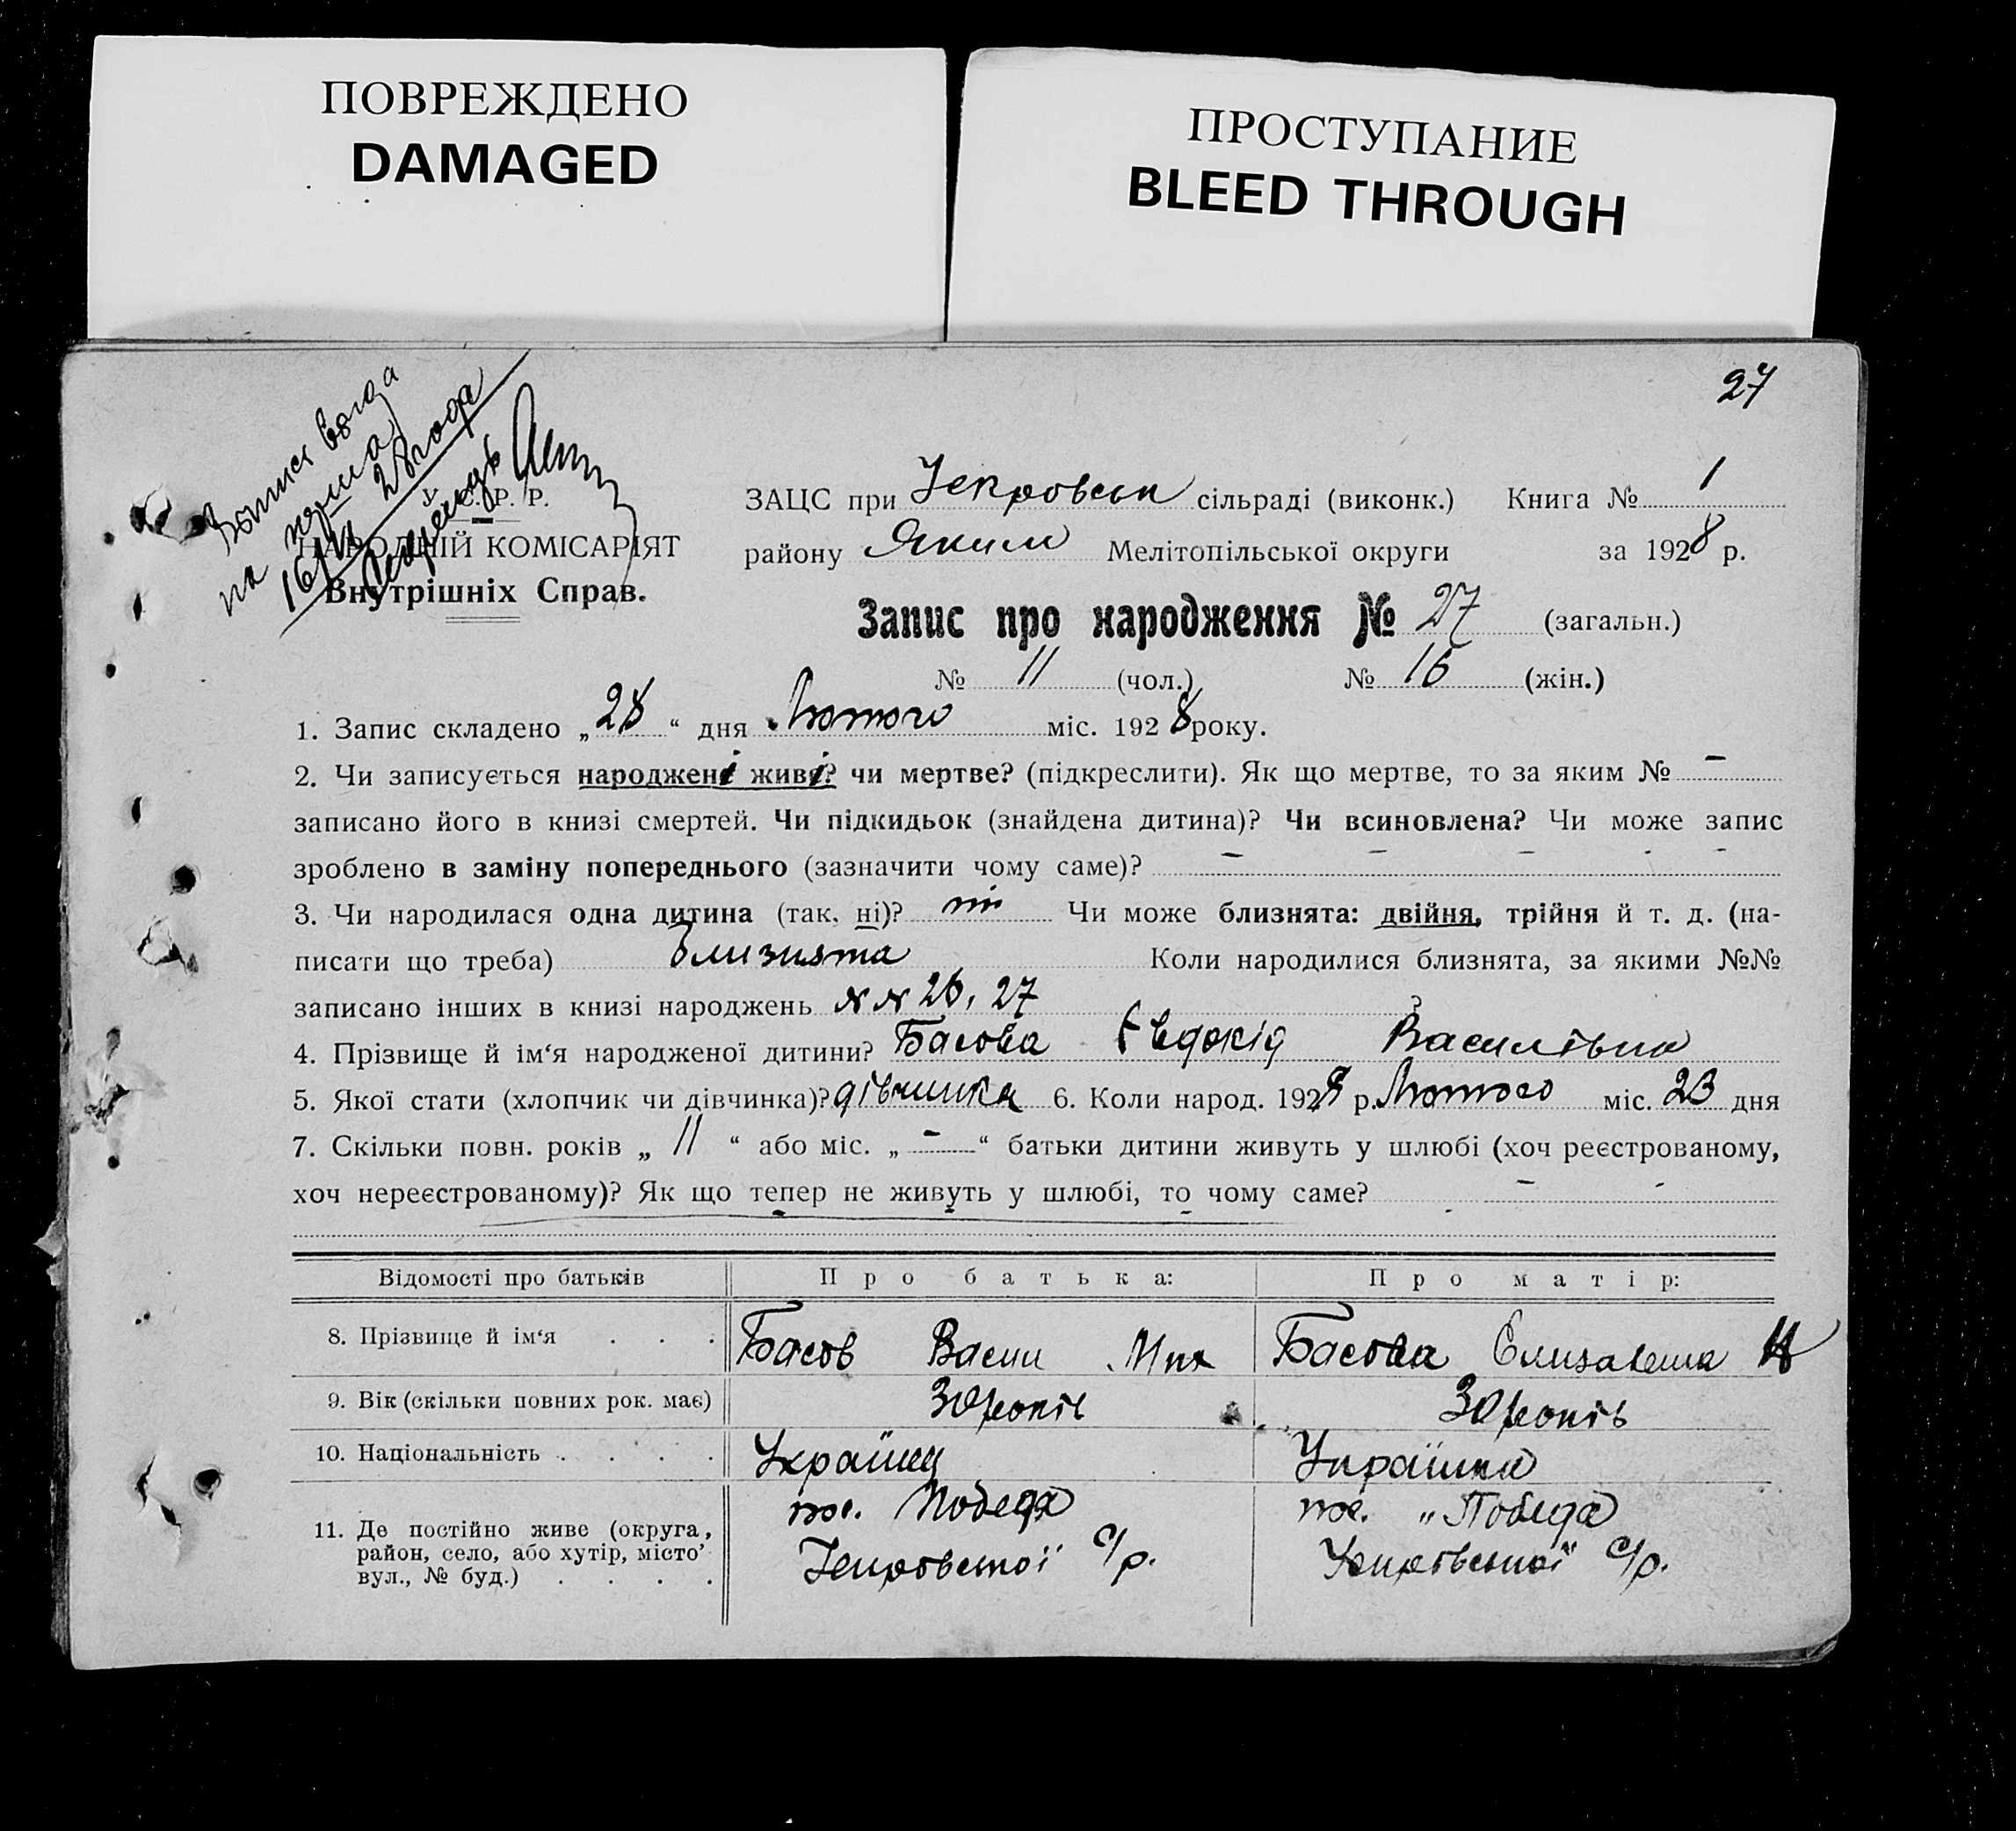 ПОВРЕЖДЕНО
DAMAGED
ПРОСТУПАНИЕ
BLEED THROUGH
27
на
28 года
У. С. Р. Р.
НАРОДНІЙ КОМІСАРІЯТ
Внутрішніх Справ.
ЗАЦС при сільраді (виконк.) Книга № 1
району Яким Мелітопільської округи за 1928 р.
Запис про народження № 27 (загальн.)
№ 11 (чол.) № 16 (жін.)
1. Запис складено „28“ дня Лютого міс. 1928 року.
2. Чи записується народжені живі? чи мертве? (підкреслити). Як що мертве, то за яким № –
записано його в книзі смертей. Чи підкидьок (знайдена дитина)? Чи всиновлена? Чи може запис
зроблено в заміну попереднього (зазначити чому саме)? – – – - -
3. Чи народилася одна дитина (так, ні)? ні Чи може близнята: двійня, трійня й т. д. (на-
писати що треба) близнята Коли народилися близнята, за якими №№
записано інших в книзі народжень № № 26, 27
4. Прізвище й ім‘я народженої дитини? Басова Євдокія Василівна
5. Якої стати (хлопчик чи дівчинка)? дівчинка 6. Коли народ. 1928 р. Лютого міс. 23 дня
7. Скільки повн. років „ 11 “ або міс. „ – “ батьки дитини живуть у шлюбі (хоч реєстрованому,
хоч нереєстрованому)? Як що тепер не живуть у шлюбі, то чому саме? – -
Відомості про батьків Про батька: Про матір:
8. Прізвище й ім‘я . . . Басов Васил Мих Басова Єлизавета
9. Вік (скільки повних рок. має) 30 років 30 років
10. Національність . . . . Українец Українка
11. Де постійно живе (округа, район, село, або хутір, місто’ вул., № буд.) . . . .
пос. Победа с/р.
пос. „Победа с/р.